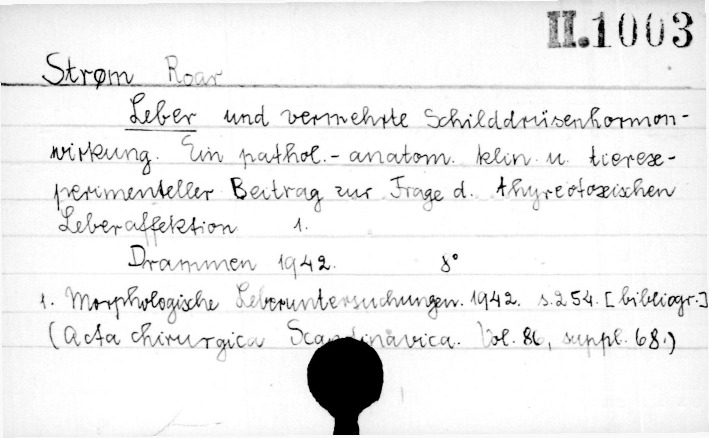 II.1003
Strøm Roar
Leber und vermehrte Schilddrüsenhormon-
wirkung. Ein pathol.-anatom. klin. u. tierex-
perimenteller Beitrag zur Frage d. thyreotoxischen
Leberaffektion 1.
Drammen 1942. 8°
1. Morphologische Leberuntersuchungen. 1942. s.254. [bibliogr.]
(Acta chirurgica Scandinavica. Vol. 86, suppl. 68.)